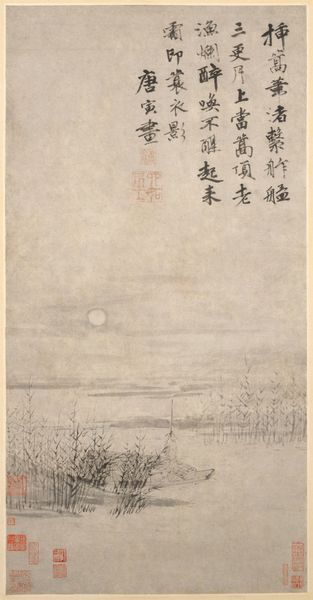 插篙葦渚繫舴艋
三更月上當篙頂老
漁爛醉喚不醒起來
霜印蓑衣影
唐寅畫